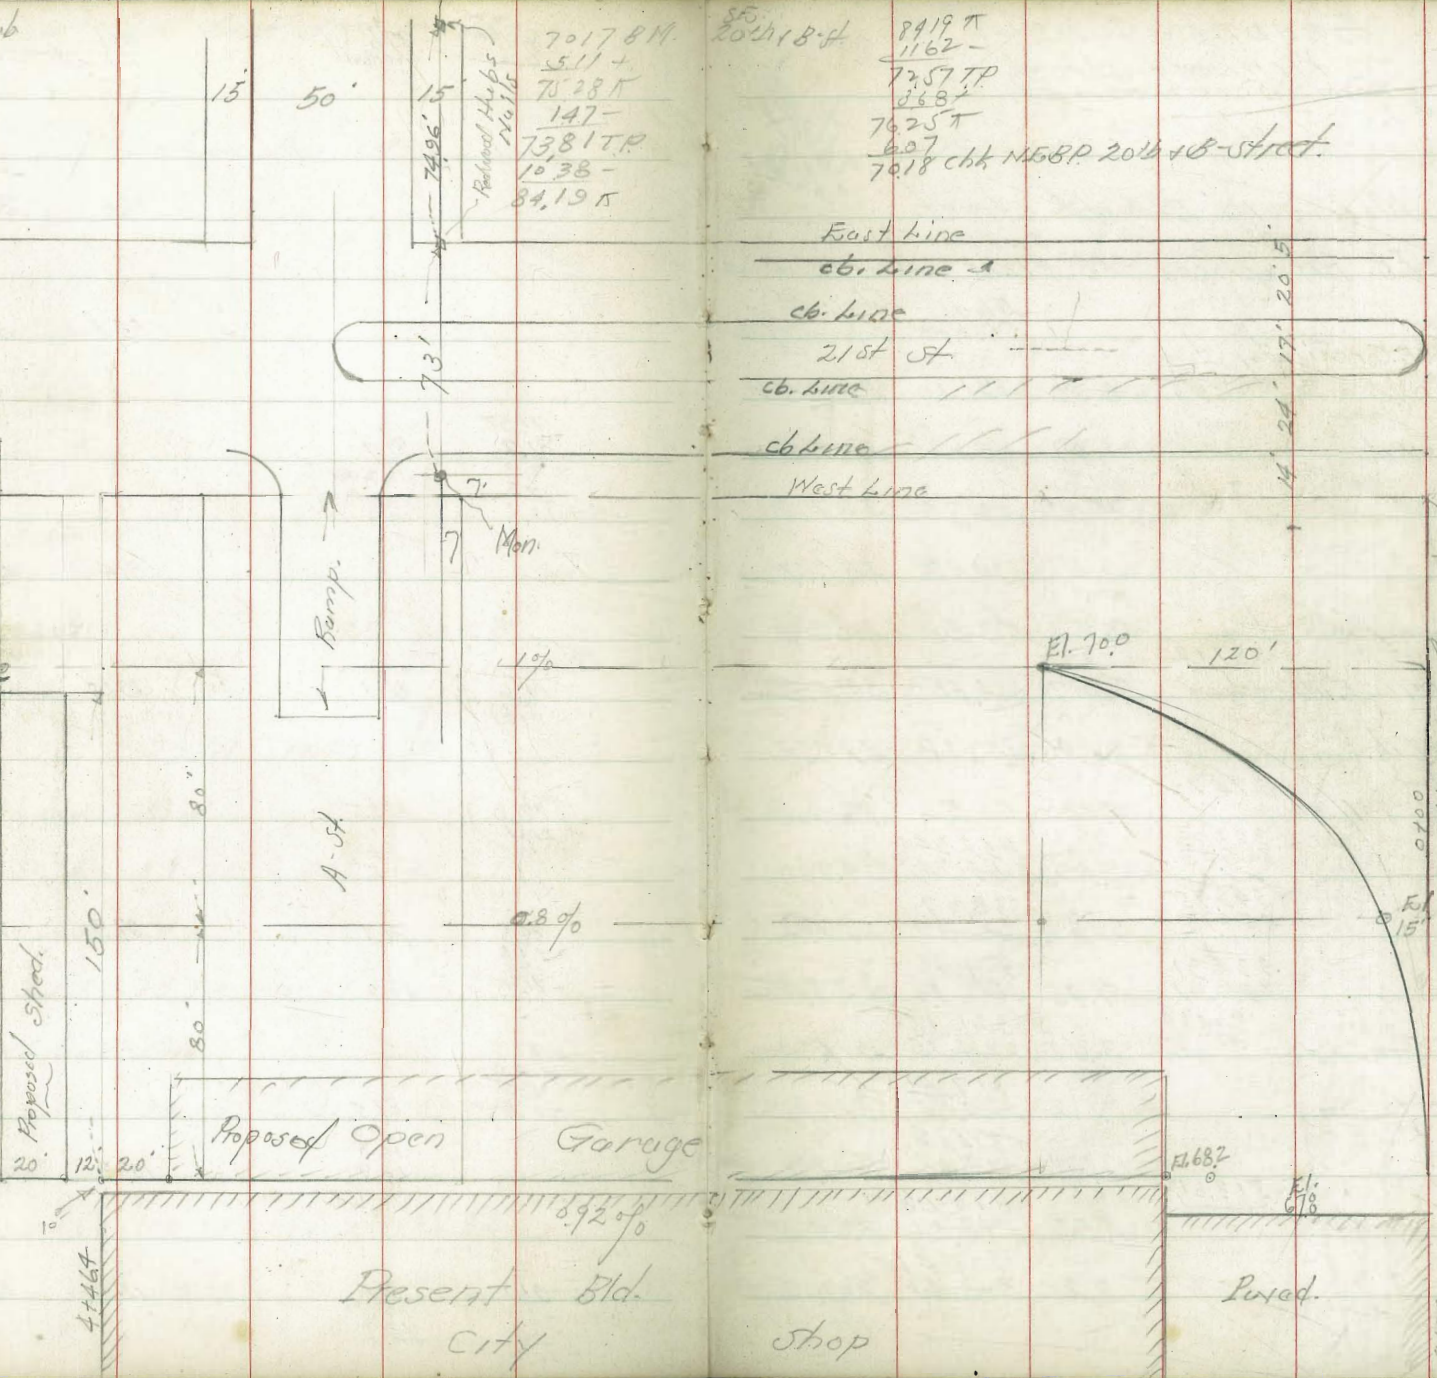 15'
50'
15
74.96'
Redwood Hubs
Nails
7017 B.M.
5.11 +
75 28 π
147 -
7381 T.P.
10 38 -
84.19 π
20th & B-st.
84 19 π
1162 -
72.57 T.P.
368 +
76.25 π
607
70.18 chk N.E.B.P. 20th & B-street.
East Line
cb. Line
cb. Line
21st St.
cb. Line
cb Line
West Line
5'
20'
17'
24'
14'
73'
7'
7
Mon.
Ramp.
1%
El. 70.0
120'
80'
A-st.
0+00
0.8%
El.
15'
150'
80'
Proposed Shed.
20'
12'
20'
Proposed Open Garage
El. 68.2
El.
67.8
0.92%
4+46.4
Present Bld.
City Shop
Paved.